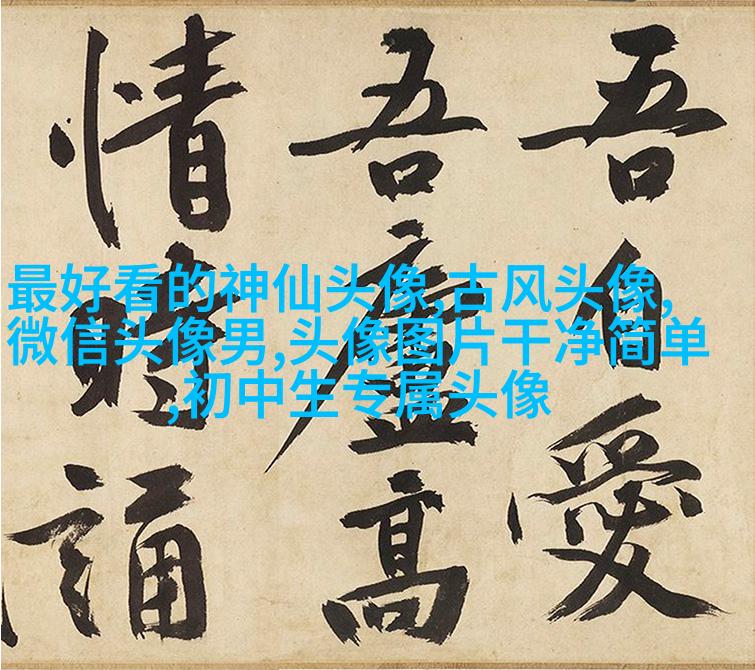 吾自愛
吾廬高
情時誦
最好看的神仙头像,古风头像,
微信头像男,头像图片干净简单
,初中生专属头像